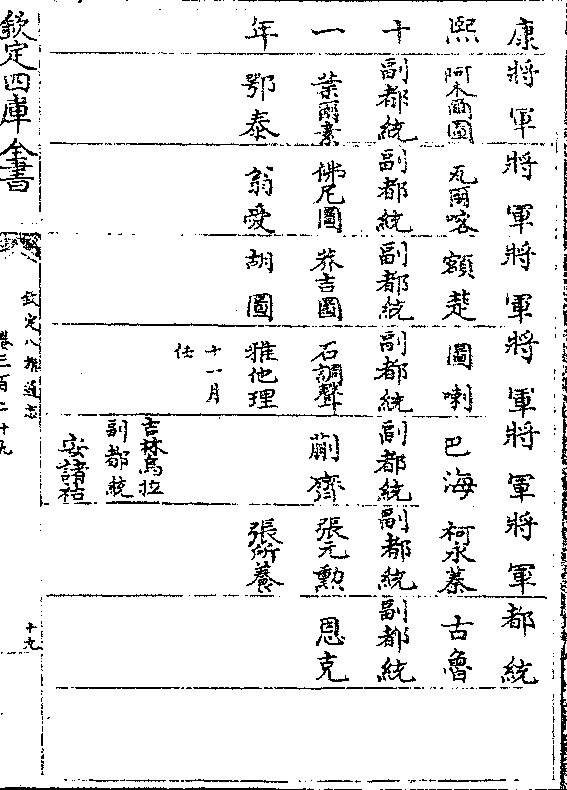 康 將軍 將軍 將軍 將軍 將軍 將軍 都統
熙 阿木爾圖 瓦爾喀 額楚 圖喇 巴海 柯永蓁 古魯
十 副都統 副都統 副都統 副都統 副都統 副都統 副都統
一 葉爾素 佛尼圖 莽吉圖 石調聲 蒯齊 張元勲 恩克
年 鄂泰 翁愛 胡圖 雅他理 張所養
十一月
任
吉林烏拉
副都統
安諸祜
欽定四庫全書
欽定八旗通志
卷三百二十九
十九